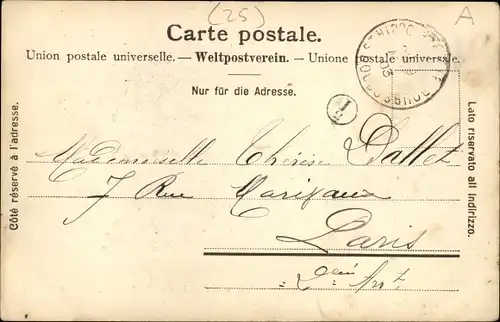 (25)
A
Carte postale.
Union postale universelle. — Weltpostverein. — Unione postale universale.
Nur für die Adresse.
Côté réservé à l'adresse.
Lato riservato all indirizzo.
ST HIPPOLYTE
03
1
Mademoiselle Thérèse Dallet
7 Rue Marivaux
Paris
2eme Arrt